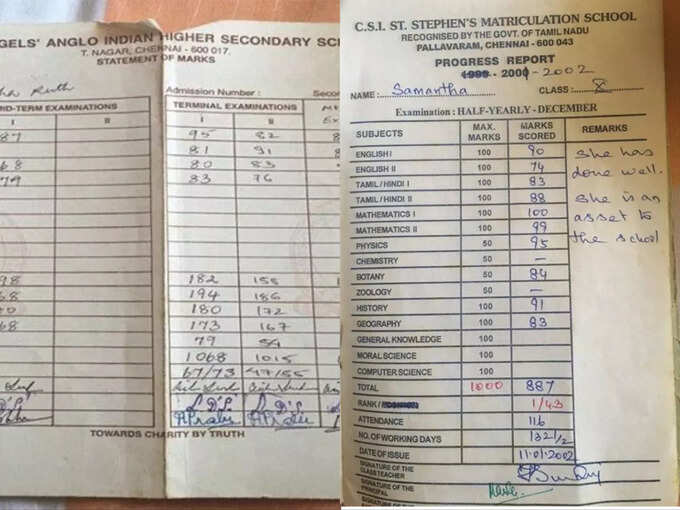 GELS' ANGLO INDIAN HIGHER SECONDARY SC
T. NAGAR, CHENNAI - 600 017.
STATEMENT OF MARKS
Ruth
Admission Number :
Secon
ID-TERM EXAMINATIONS
TERMINAL EXAMINATIONS
I II I II
87 95 82
81 91
68 80 83
79 83 76
98 182 158
68 194 186
180 172
68 173 167
79 84
1068 1015
67/73 47/55
TOWARDS CHARITY BY TRUTH
C.S.I. ST. STEPHEN'S MATRICULATION SCHOOL
RECOGNISED BY THE GOVT. OF TAMIL NADU
PALLAVARAM, CHENNAI - 600 043
PROGRESS REPORT
2001-2002
NAME : Samantha CLASS : X
Examination : HALF-YEARLY - DECEMBER
SUBJECTS MAX. MARKS MARKS SCORED REMARKS
ENGLISH I 100 90 She has
ENGLISH II 100 74 done well.
TAMIL / HINDI I 100 83
TAMIL / HINDI II 100 88 She is an
MATHEMATICS I 100 100 asset to
MATHEMATICS II 100 99 the school
PHYSICS 50 95
CHEMISTRY 50 —
BOTANY 50 84
ZOOLOGY 50 —
HISTORY 100 91
GEOGRAPHY 100 83
GENERAL KNOWLEDGE 100
MORAL SCIENCE 100
COMPUTER SCIENCE 100
TOTAL 1000 887
RANK / 1/43
ATTENDANCE 116
NO. OF WORKING DAYS 132 1/2
DATE OF ISSUE 11.01.2002
SIGNATURE OF THE CLASS TEACHER
SIGNATURE OF THE PRINCIPAL
SIGNATURE OF THE